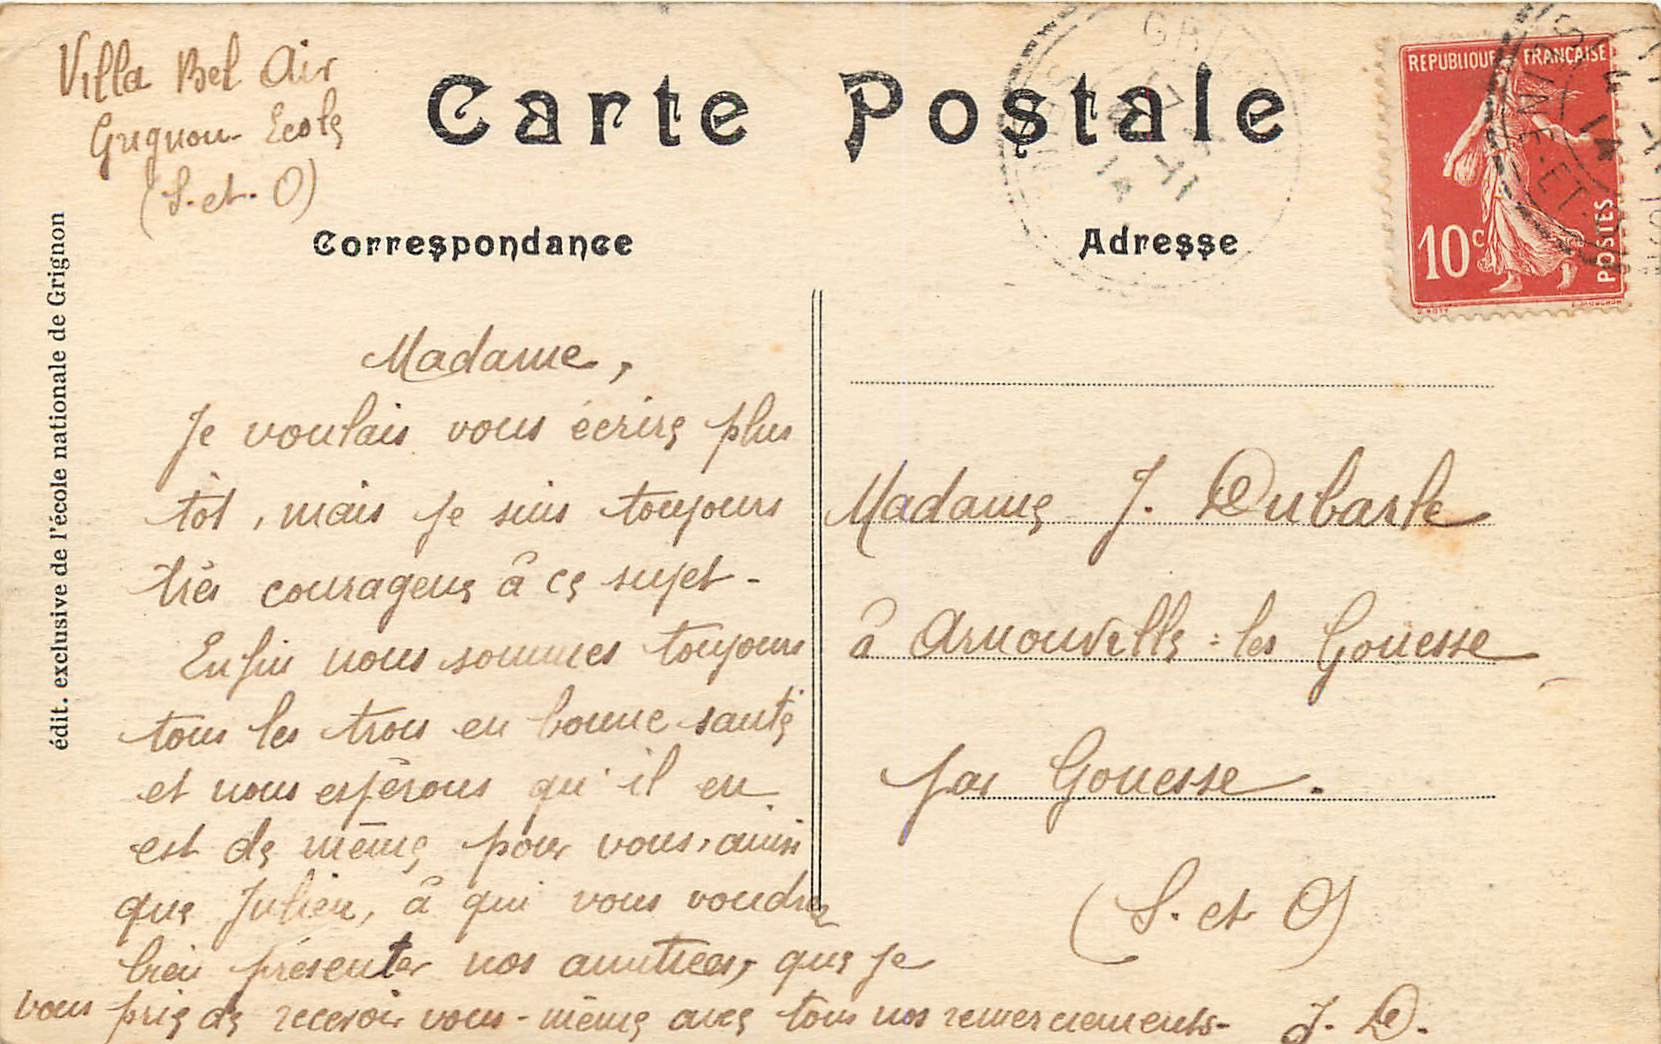 Villa Bel Air
Grignon-Ecole
(S.-et-O)
Carte Postale
Correspondance
Adresse
REPUBLIQUE FRANÇAISE
10c
POSTES
édit. exclusive de l'école nationale de Grignon
Madame,
Je voulais vous écrire plus
tôt, mais je suis toujours
très courageux à ce sujet-
Enfin nous sommes toujours
tous les trois en bonne santé
et nous espérons qu'il en
est de même pour vous, ainsi
que Julien, à qui vous voudrez
bien présenter nos amitiées, que je
vous prie de recevoir vous-même avec tous nos remerciements- J. D.
Madame J. Dubarle
à Arnouville-les Gonesse
par Gonesse.
(S. et O)